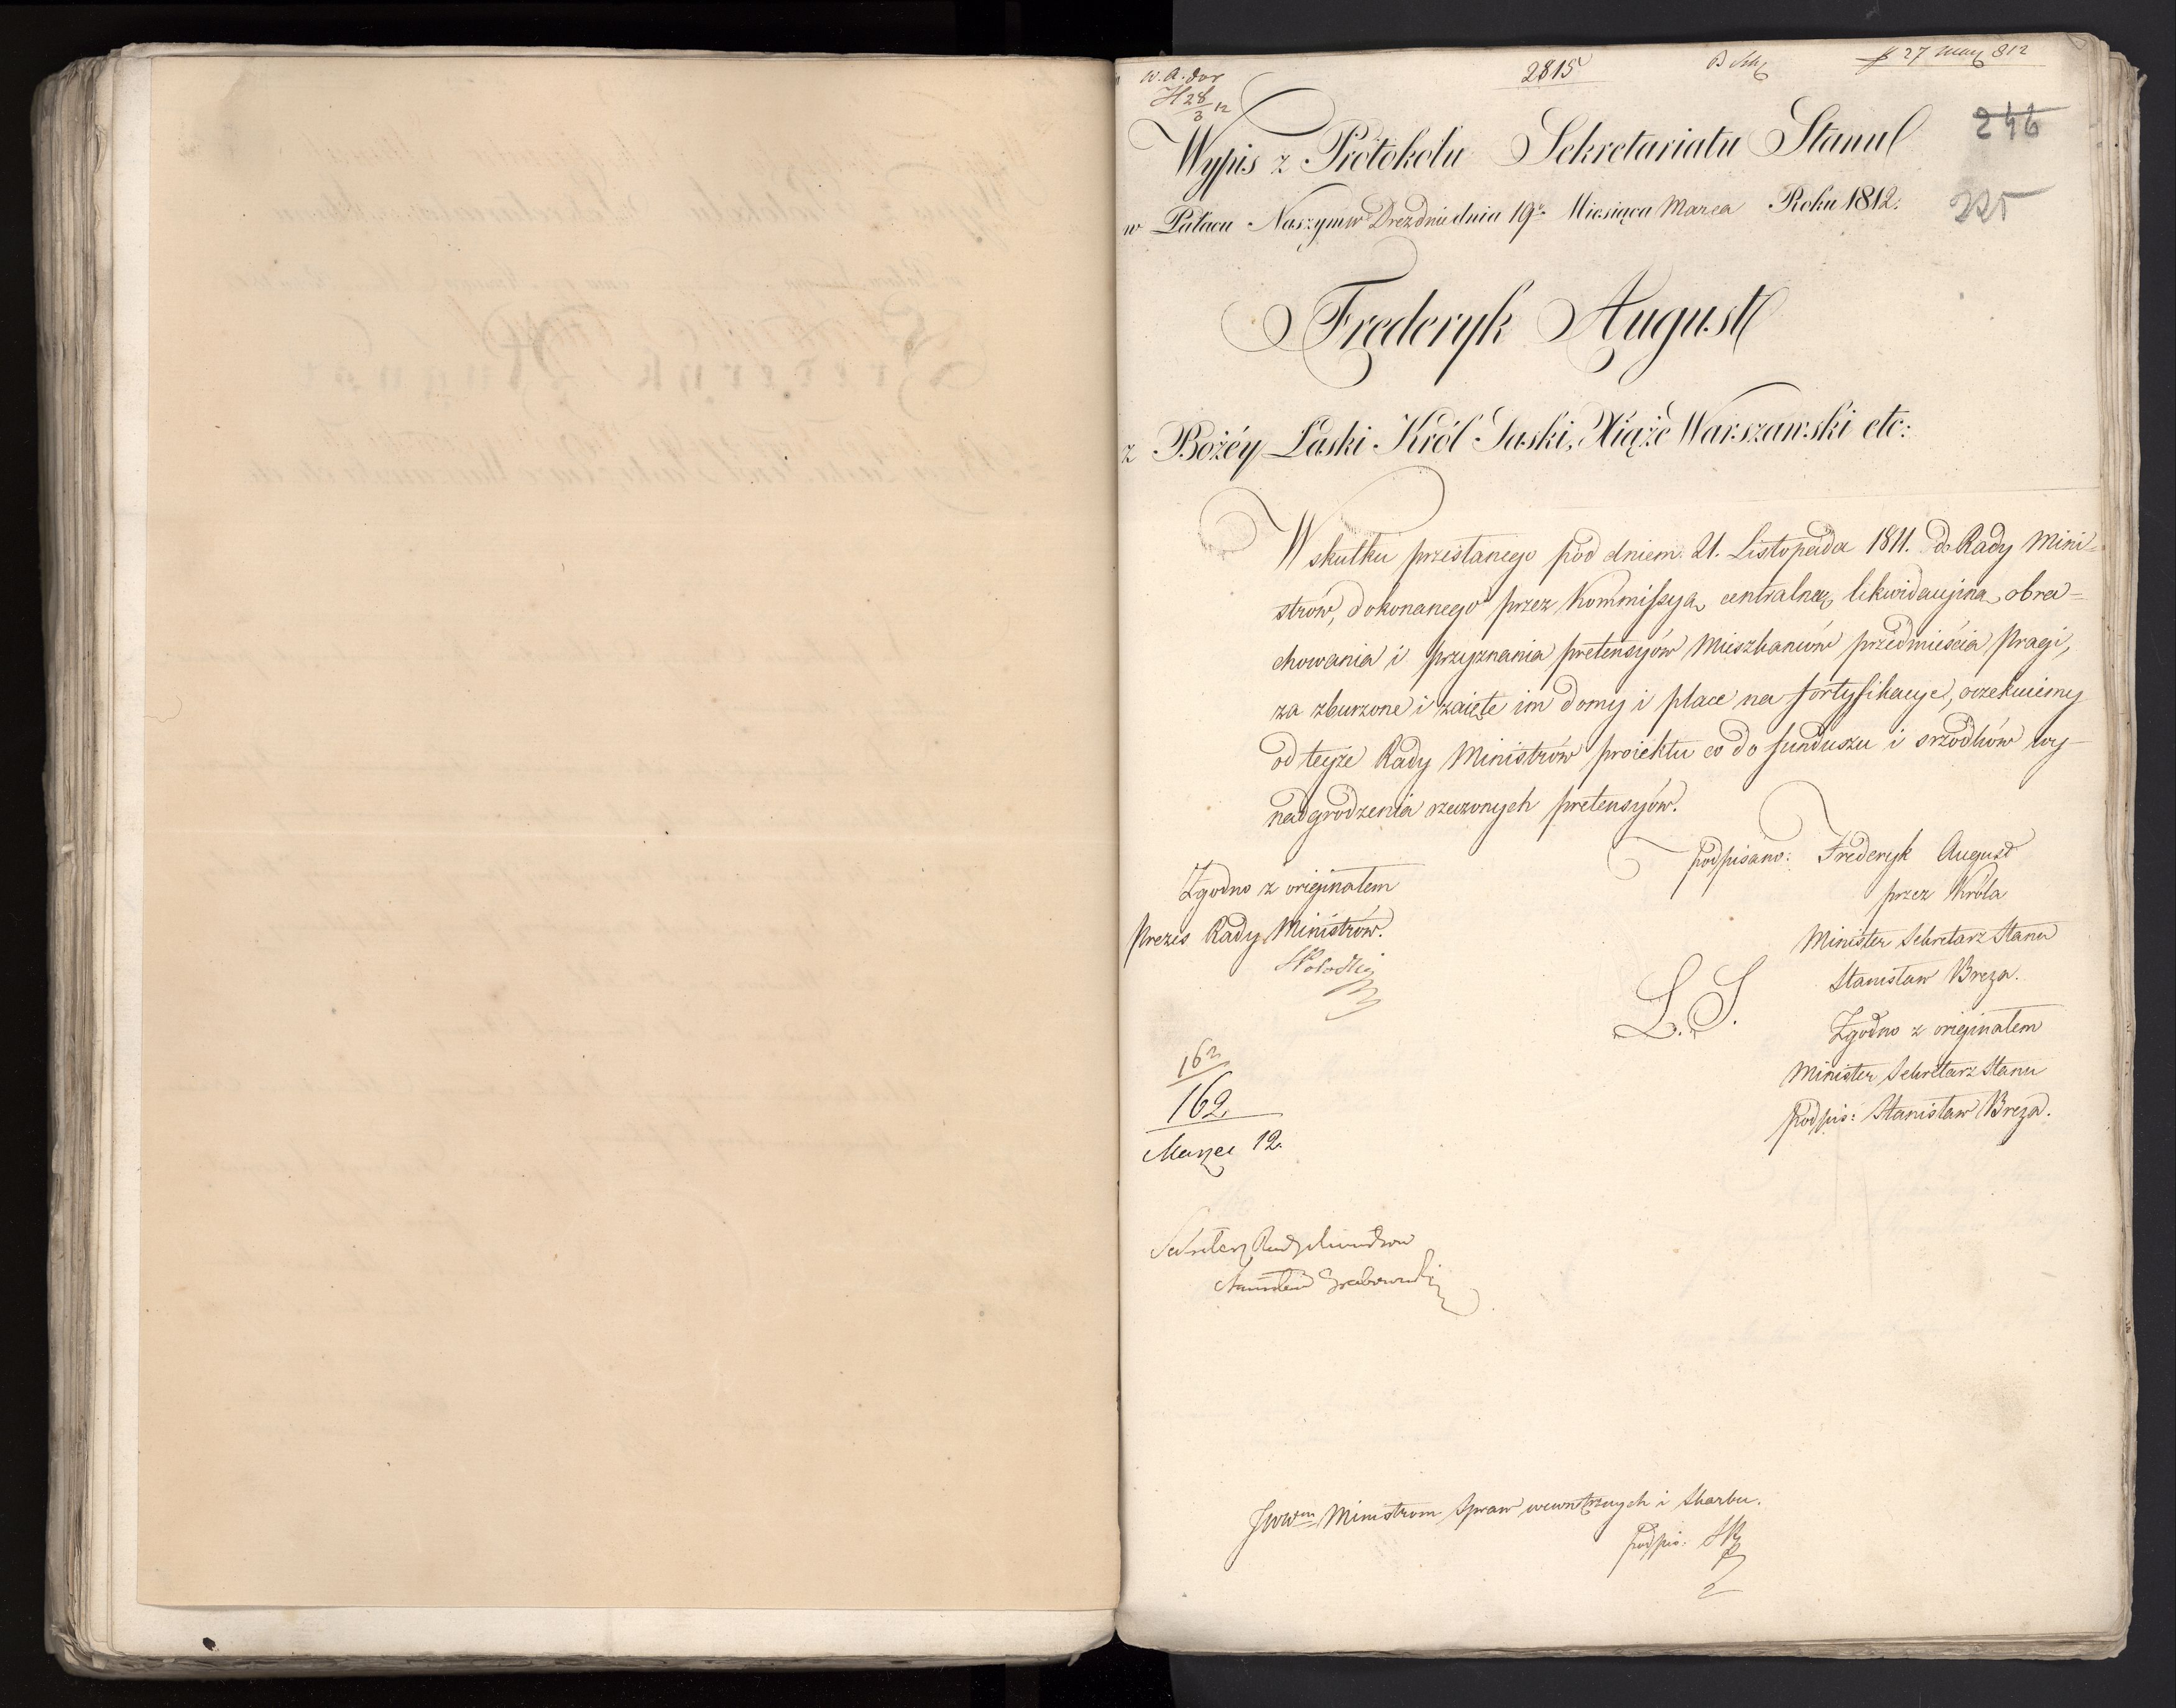 2815
27 May 812
H 28/3 12
246
Wypis z Protokolu Sekretariatu Stanu
225
w Pałacu Naszym w Dreznie dnia 19o Miesiąca Marca Roku 1812.
Frederyk August
z Bożéy Łaski Król Saski, Xiąże Warszawski etc:
W skutku przesłanego pod dniem 21. Listopada 1811. do Rady Mini=
strów, dokonanego przez Kommissyą centralną likwidacyiną, obra=
chowania i przyznania pretensyów Mieszkanców przedmieścia Pragi,
za zburzone i zaięte im domy i place na fortyfikacye, oczekuiemy
od teyże Rady Ministrów proiektu co do funduszu i srzodków wy=
nadgrodzenia rzeczonych pretensyów.
podpisano: Frederyk August
przez Króla
Minister Sekretarz Stanu
Stanisław Breza.
L. S.
Zgodno z originałem
Minister Sekretarz Stanu
podpis: Stanisław Breza.
Zgodno z originałem
Prezes Rady Ministrów.
162
162
Marzec 12.
Sekretarz Rady Ministrow
Stanisław Grabowski
JWWm Ministrom Spraw wewnętrznych i Skarbu.
podpis: